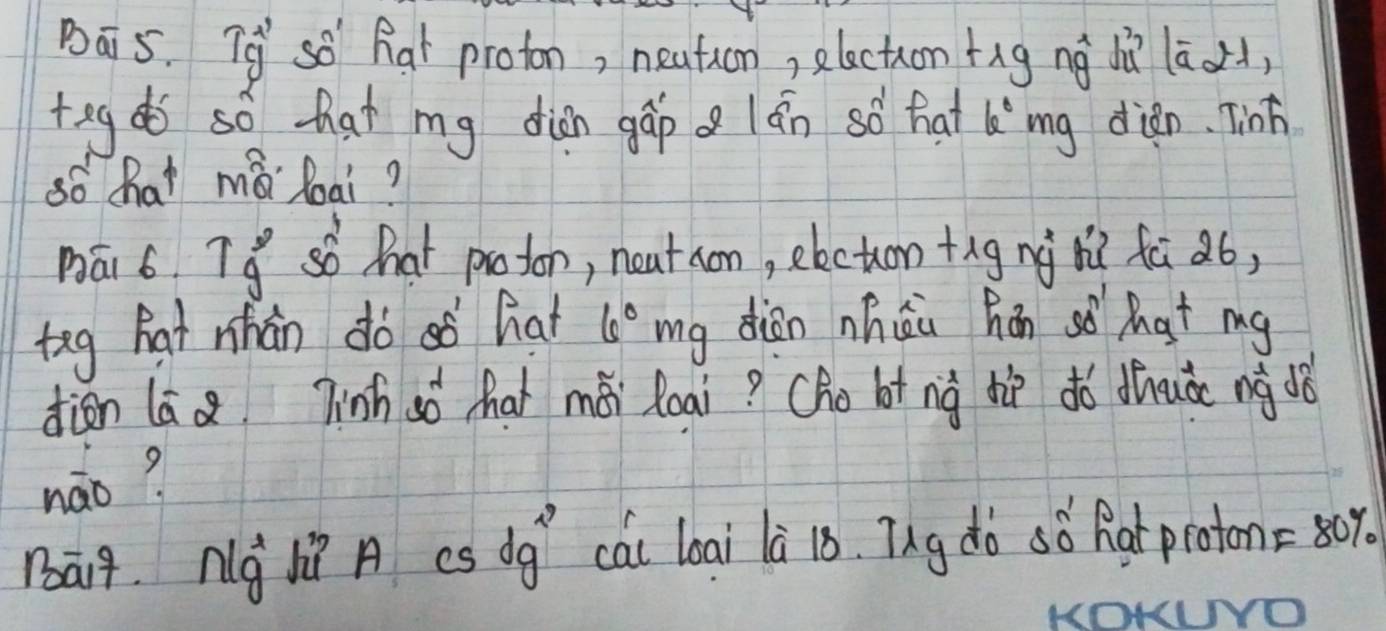 Bài 5. Tg̉ số hạt proton, neutron, electron trg ng̉ tử là 21,
trg đó số hạt mg điện gấp 2 lần số hạt ko mg điện. Tính
số hạt mỗi loại?
Bài 6. Tg̉ số hạt proton, neutron, electron trg ng̉ tử là 26,
trg hạt nhân đó số hạt ko mg điện nhiều hơn số hạt mg
điện là 2. Tính số hạt mỗi loại? Cho bt ng̉ tử đó thuộc ng̉ tố
nào?
Bài 7. Ng̉ tử A cs tg̉ các loại là 18. Trg đó số hạt proton = 80%
KOKUYO